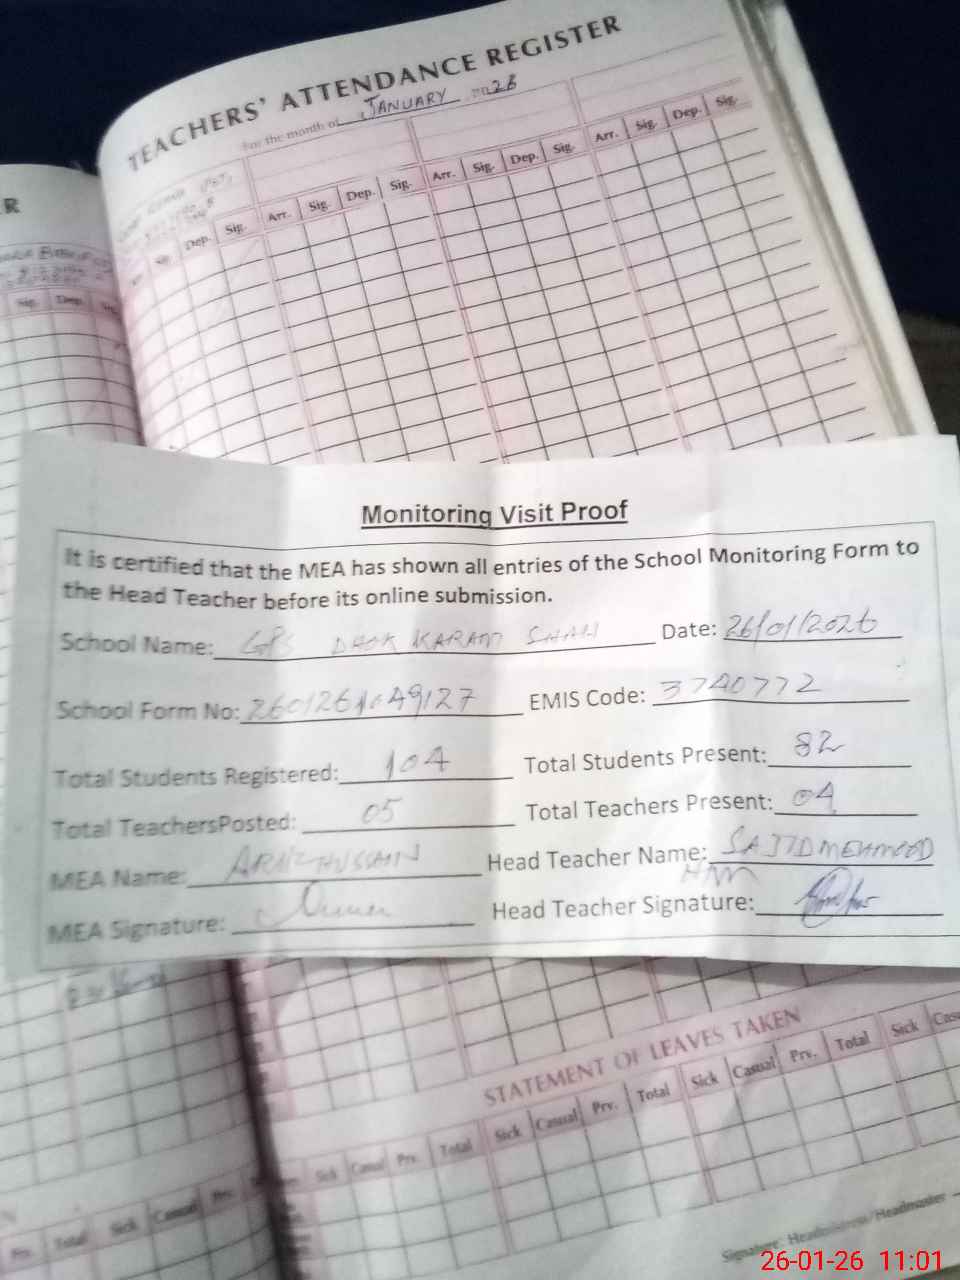 TEACHERS' ATTENDANCE REGISTER
For the month of JANUARY 2026
R
Arr. Sig. Dep. Sig. Arr. Sig. Dep. Sig. Arr. Sig. Dep. Sig.
Sig. Dep. Sig.
Sig. Dep.
Monitoring Visit Proof
It is certified that the MEA has shown all entries of the School Monitoring Form to
the Head Teacher before its online submission.
School Name: GPS DHOK KARAM SHAH Date: 26/01/2026
School Form No: EMIS Code: 3740772
Total Students Registered: 104 Total Students Present: 82
Total TeachersPosted: 05 Total Teachers Present: 04
MEA Name: HUSSAIN Head Teacher Name: SAJID MEHMOOD
MEA Signature: Head Teacher Signature:
STATEMENT OF LEAVES TAKEN
Sick Casual Prv. Total Sick Casual Prv. Total Sick Casual Prv. Total Sick
Prv. Total Sick Casual Prv.
Signature: Headmistress/Headmaster
26-01-26 11:01